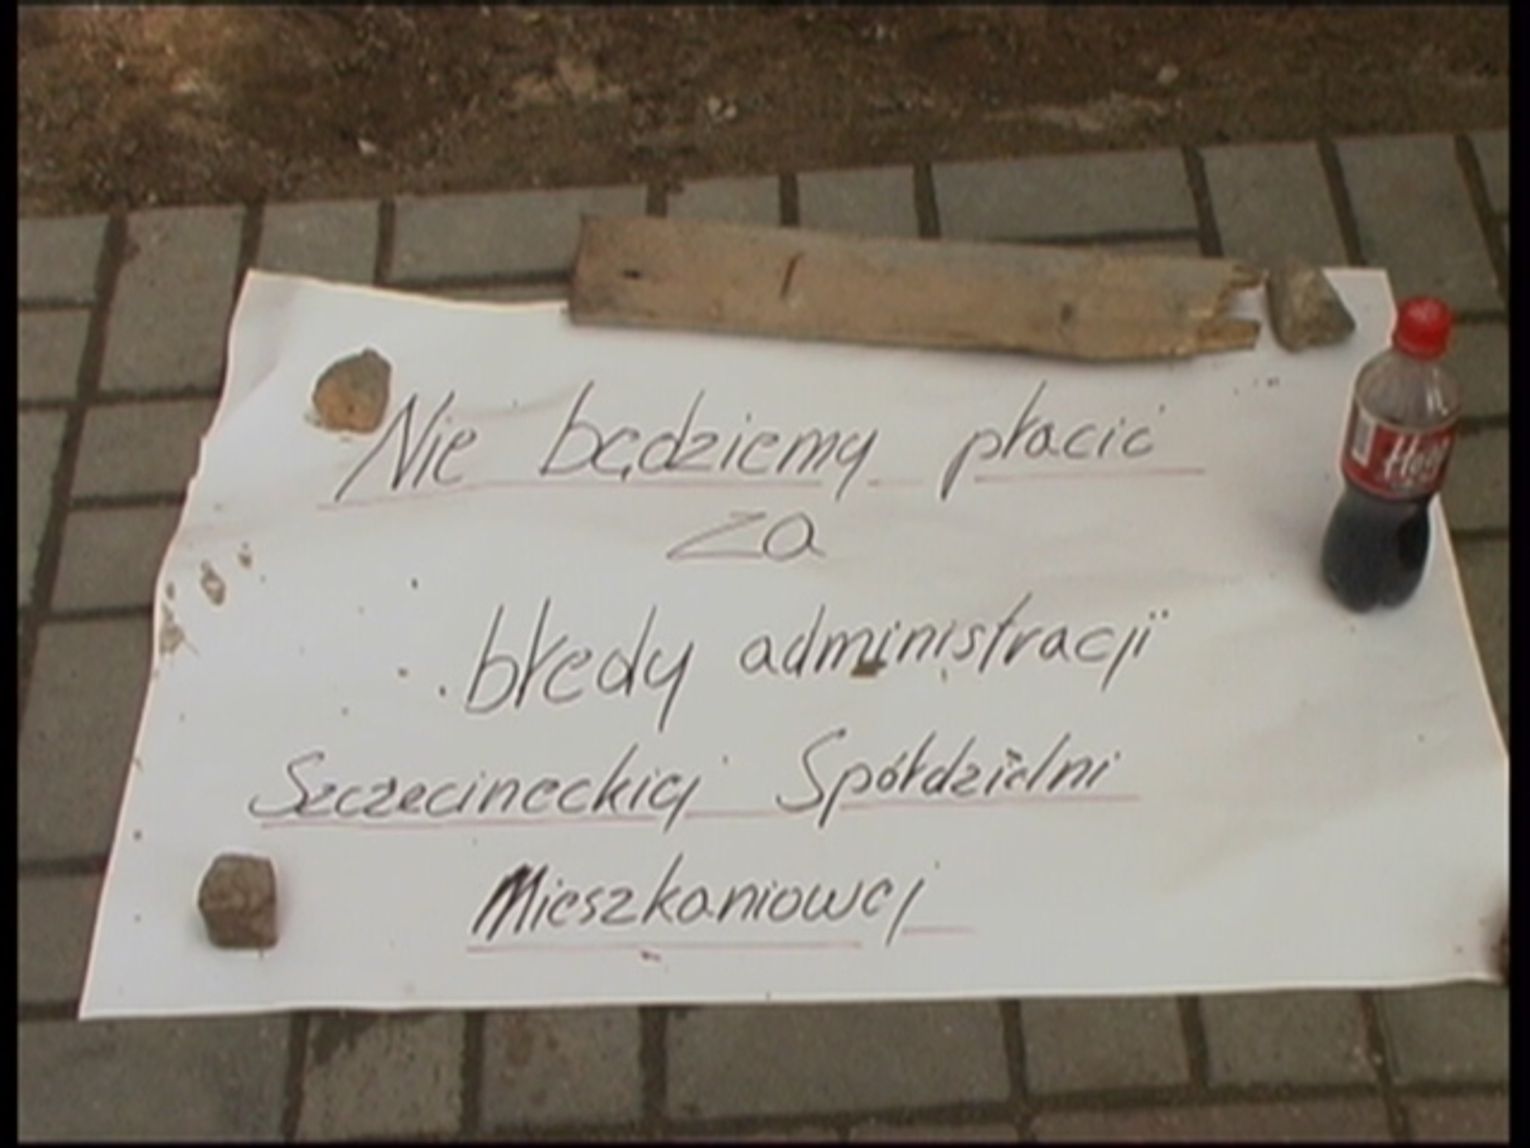 Nie będziemy płacić
za
błedy administracji
Szczecineckiej Spółdzielni
Mieszkaniowej
Hoop